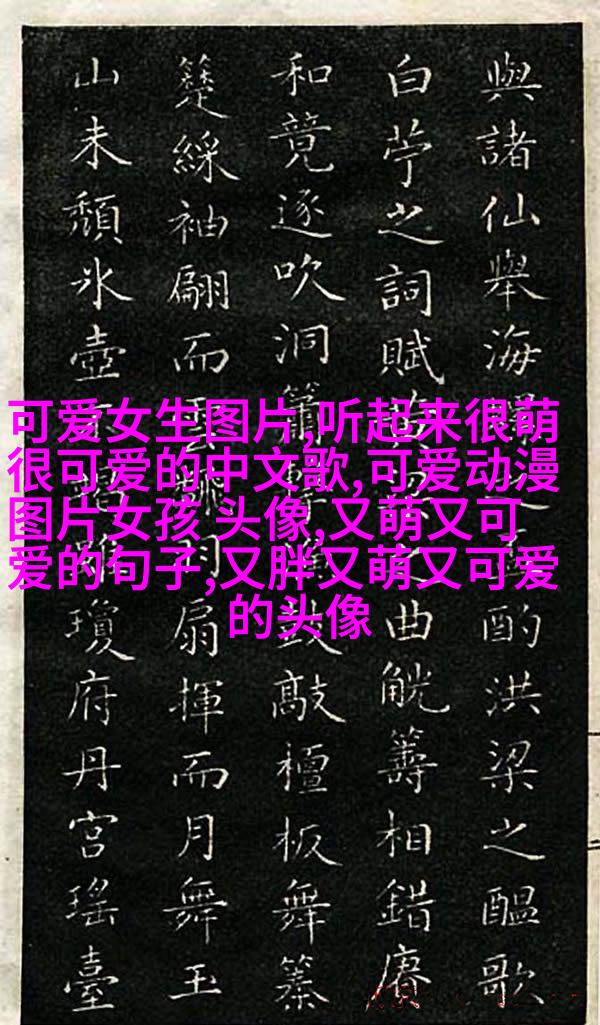 可爱女生图片,听起来很萌
很可爱的中文歌,可爱动漫
图片女孩 头像,又萌又可
爱的句子,又胖又萌又可爱
的头像
與諸仙舉海之酌洪梁之醞歌
白苧之詞賦之曲觥籌相錯賡
和竟逐吹洞簫鼓敲檀板舞
綵袖翩而羽扇揮而月舞玉
山未頹氷壺雕瓊府丹宮瑤臺